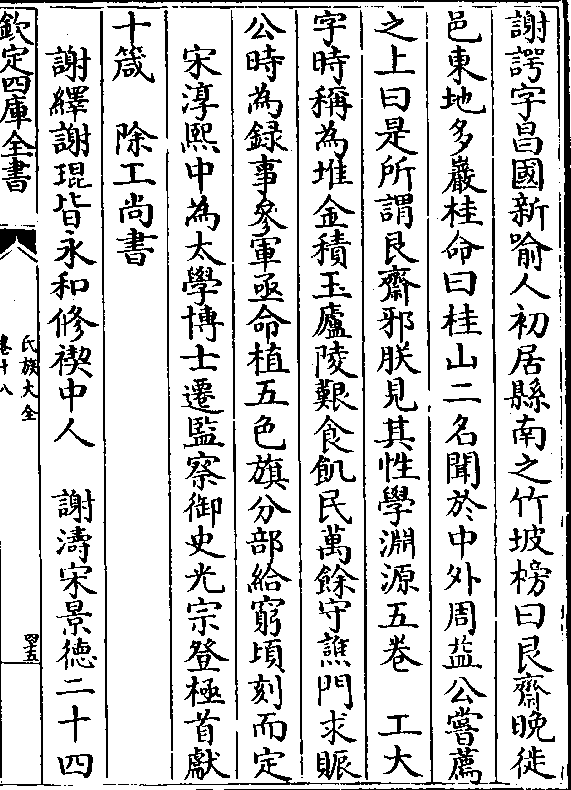 謝諤字昌國新喻人初居縣南之竹坡榜曰艮齋晚徙
邑東地多巖桂命曰桂山二名聞於中外周益公嘗薦
之上曰是所謂艮齋邪朕見其性學淵源五卷　工大
字時稱為堆金積玉廬陵艱食飢民萬餘守譙門求賑
公時為録事參軍亟命植五色旗分部給窮頃刻而定
宋淳熙中為太學博士遷監察御史光宗登極首獻
十箴　除工尚書
謝繹謝琨皆永和修禊中人　謝濤宋景德二十四
欽定四庫全書
氏族大全
卷十八
四五